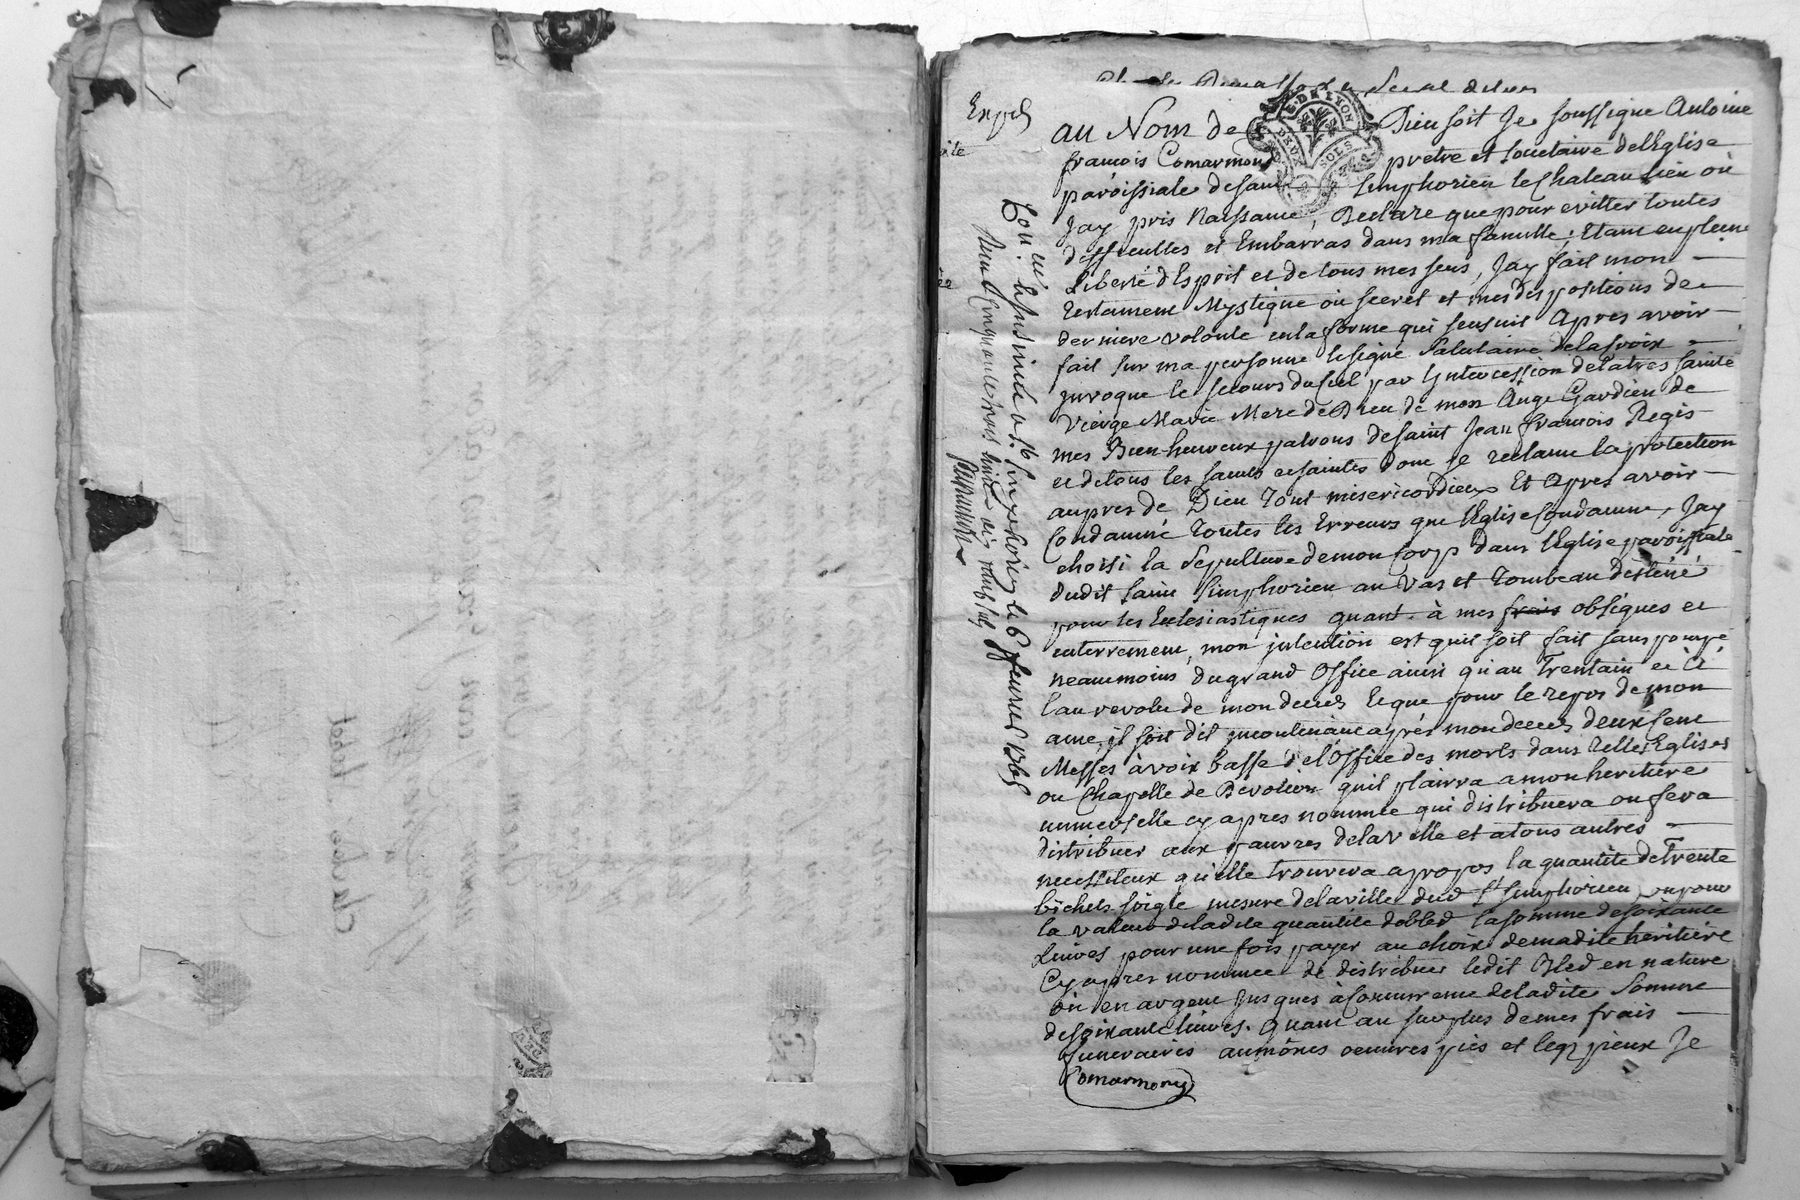 Exped
au Nom de Dieu soit Je soussigne Antoine
françois Comarmond pretre et societaire de lEglise
paroissiale de saint Simphorien le Chateau lieu où
Jay pris Naissance, Declare que pour evitter toutes
difficultes et Embarras dans ma famille; Etant en pleine
Liberté dEsprit et de tous mes sens, Jay fait mon
testament Mystique ou secret et mes dispositions de
derniere volonté en la forme qui sensuit Apres avoir
fait sur ma personne le signe Salutaire de la croix
jnvoque le secours du Ciel par Lyntercession de la tres sainte
Vierge Marie Mere de Dieu de mon Ange Gardien de
mes Bienheureux patrons de saint Jean françois Regis
et de tous les saints et saintes dont je reclame la protection
aupres de Dieu Tout misericordieux Et Apres avoir
Condamné Toutes les Erreurs que lEglise Condamne, Jay
choisi la sepulture de mon Corps dans lEglise paroissiale
dudit saint Simphorien au Vas et Tombeau destiné
pour les Eclesiastiques quant à mes frais obseques et
enterrement, mon jntention est quil soit fait sans pompe
neanmoins du grand Office ainsi qu'au Trentain et à
lan revolu de mon deces Et que pour le repos de mon
ame, il soit dit jncontinant après mon deces deux cent
Messes à voix basse de lOffice des morts dans telles Eglises
ou Chapelle de Devotion quil plairra a mon heritiere
universelle cy apres nommée qui distribuera ou fera
distribuer aux pauvres de la ville et a tous autres
necessiteux qu'elle trouvera apropos, la quantite de Trente
bichets soigle mesure de la ville dud St simphorien, ou pour
la valeur de ladite quantité de bled la somme de soixante
Livres pour une fois payer au choix de madite heritiere
Cy apres nommée de distribuer ledit Bled en nature
ou en argent jusques à Concurrence de ladite somme
de soixante livres. Quant au surplus de mes frais
funeraires aumônes oeuvres pies et legz pieux Je
Comarmond
Con. et Insinué a St. Simphorien le 6 feurier 1765